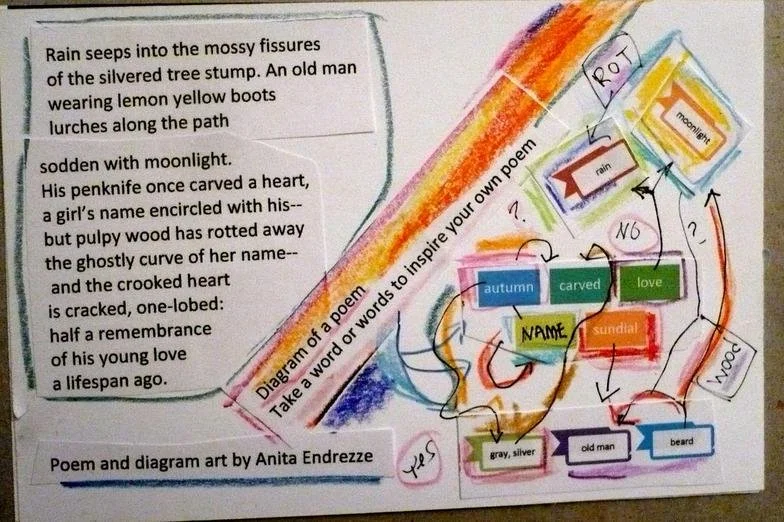 Rain seeps into the mossy fissures
of the silvered tree stump. An old man
wearing lemon yellow boots
lurches along the path
sodden with moonlight.
His penknife once carved a heart,
a girl's name encircled with his--
but pulpy wood has rotted away
the ghostly curve of her name--
and the crooked heart
is cracked, one-lobed:
half a remembrance
of his young love
a lifespan ago.
Poem and diagram art by Anita Endrezze
Diagram of a poem
Take a word or words to inspire your own poem
ROT
moonlight
rain
?
NO
?
autumn
carved
love
NAME
sundial
WOOD
yes
gray, silver
old man
beard